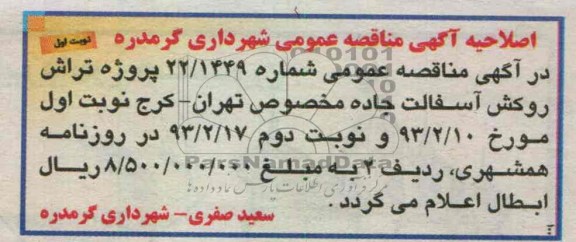 نوبت اول
اصلاحیه آگهی مناقصه عمومی شهرداری گرمدره
در آگهی مناقصه عمومی شماره ۲۲/۱۴۴۹ پروژه تراش
روکش آسفالت جاده مخصوص تهران- کرج نوبت اول
مورخ ۹۳/۲/۱۰ و نوبت دوم ۹۳/۲/۱۷ در روزنامه
همشهری، ردیف ۲ به مبلغ ۸/۵۰۰/۰۰۰/۰۰۰ ریال
ParsNamadData
ابطال اعلام می گردد.
سعید صفری- شهرداری گرمدره